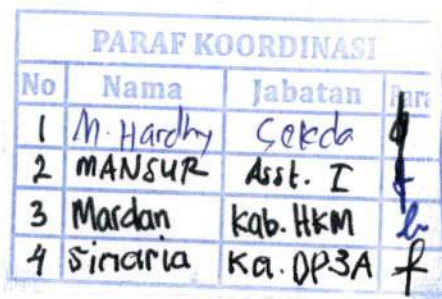 PARAF KOORDINASI
No Nama Jabatan Para
1 M. Hardhy Sekda
2 MANSUR Asst. I
3 Mardan Kab. HKM
4 Sinaria Ka. DP3A